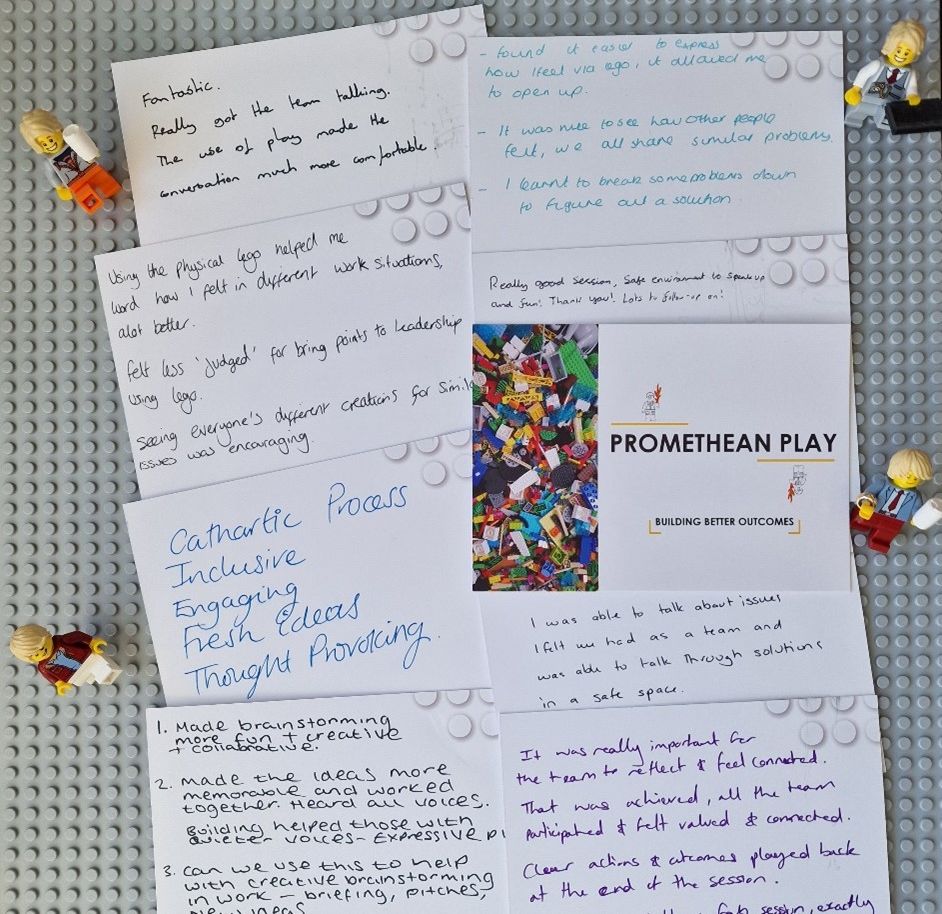 Fantastic.
Really got the team talking.
The use of play made the
conversation much more comfortable.
- found it easier to express
how I feel via lego, it allowed me
to open up.
- It was nice to see how other people
felt, we all share similar problems.
- I learnt to break some problems down
to figure out a solution.
Using the physical lego helped me
word how I felt in different work situations,
alot better.
felt less 'judged' for bring points to leadership
using lego.
Seeing everyone's different creations for simila
issues was encouraging.
Really good session, Safe environment to speak up
and fun! Thank you! Lots to follow-up on!
PROMETHEAN PLAY
BUILDING BETTER OUTCOMES
Cathartic Process
Inclusive
Engaging
Fresh ideas
Thought Provoking.
I was able to talk about issues
I felt we had as a team and
was able to talk through solutions
in a safe space.
1. Made brainstorming
more fun + creative
+ collaborative.
2. made the ideas more
memorable and worked
together. Heard all voices.
Building helped those with
quieter voices - expressive
3. can we use this to help
with creative brainstorming
in work - briefing, pitches,
new ideas
It was really important for
the team to reflect & feel connected.
That was achieved, all the team
participated & felt valued & connected.
Clear actions & outcomes played back
at the end of the session.
fab session, exactly